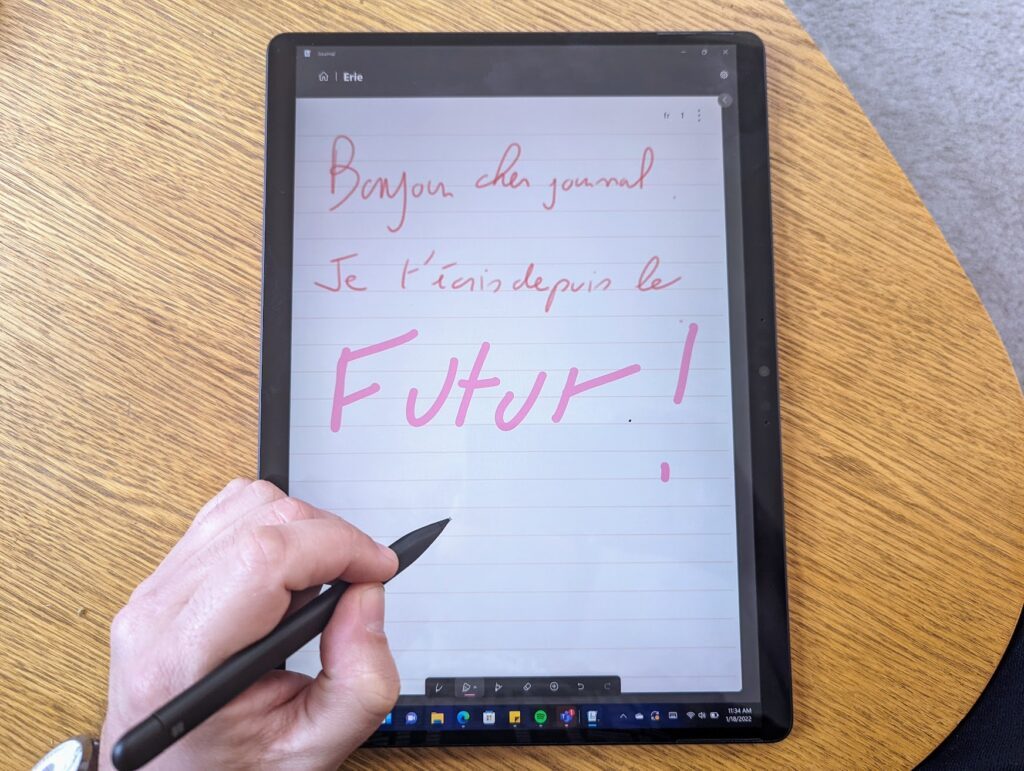 Journal
Erle
fr 1
Bonjour cher journal.
Je t'écris depuis le
Futur !
11:34 AM
1/18/2022